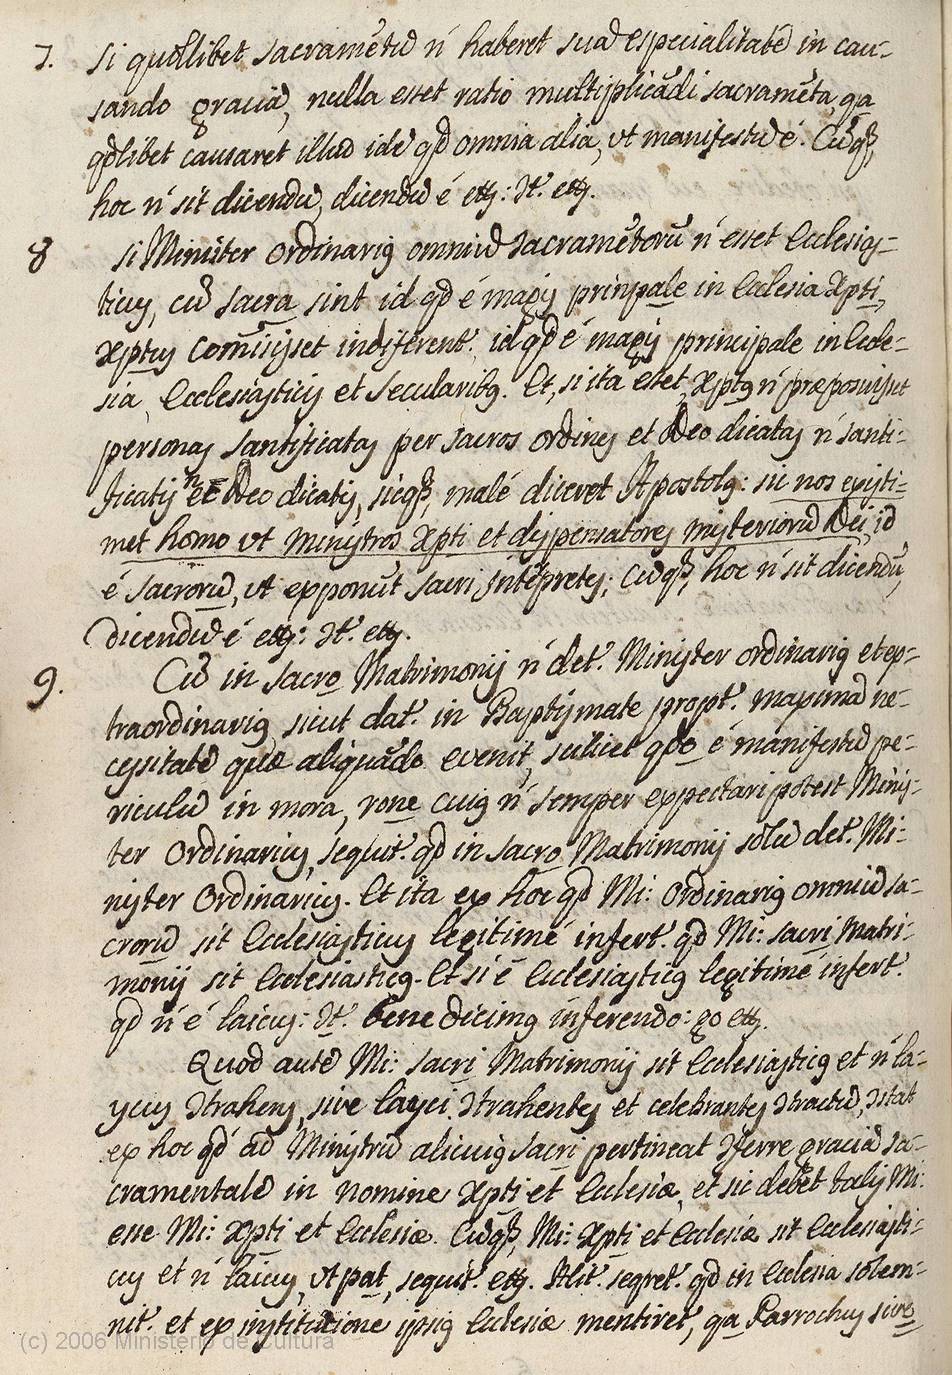 7. si quodlibet sacramẽtũ ń haberet suã espicialitatẽ in cau-
sando graciã, nulla esset ratio multiplicãdi sacramẽta, qa
qdlibet causaret illud idẽ qd omnia alia, vt manifestũ é. Cũq3,
hoc ń sit dicendũ, dicendũ é etc3: It. etc3.
8 si Minister ordinari9 omniũ sacramẽtorũ ń esset Ecclesias-
ticus, cũ sacra sint id qd é magis prinpale in Ecclesia Xpti,
Xptus comisiset indiferent. id qd é magis principale in Eccle-
sia, Ecclesiasticis et secularib9. Et, si ita esset, Xpt9 ń præposuisset
personas santificatas per sacros ordines et Deo dicatas ń santi-
ficatis n et Deo dicatis, sicq3, malé diceret Apostol9: sic nos existi-
met homo vt ministros Xpti et dispensatores misteriorũ Dei, id
é sacrorũ, vt exponũt sacri intérpretes; Cũq3, hoc ń sit dicendũ,
dicendũ é etc3: It. etc3.
9. Cũ in sacro Matrimonij ń det.r Minister ordinari9 et ex-
traordinari9, sicut dat.r in Baptismate propt.r maximã ne-
cessitatẽ quæ aliquãdo evenit, scilicet qdo é manifestũ pe-
riculũ in mora, rone cui9 ń semper expectari potest Minis-
ter Ordinarius, sequit.r qd in sacro Matrimonij solũ det.r Mi-
nister Ordinarius. Et ita ex hoc qd Mi: Ordinari9 omniũ sa-
crorũ sit Ecclesiasticus legitimé infert.r qd Mi: sacri Matri-
monij sit Ecclesiastic9. Et si é Ecclesiastic9 legitimé infert.r
qd ń é laicus: It. bene dicim9 inferendo: go etc3.
Quod autẽ Mi: sacri Matrimonij sit Ecclesiastic9 et ń la-
ycus Ↄtrahens, sive layci Ↄtrahentes et celebrantes Ↄtractũ, Ↄstat
ex hoc qd ad Ministrũ alicui9 sacri pertineat Ↄferre graciã sa-
cramentalẽ in nomine Xpti et Ecclesiæ, et sic debet talis Mi:
esse Mi: Xpti et Ecclesiæ. Cũq3, Mi: Xpti et Ecclesiæ sit Ecclesiasti-
cus et ń laicus, vt pat.t, sequit.r etc3. Alit.r seqret.r qd in Ecclesia solem-
nit.r et ex institutione ipsi9 Ecclesiæ mentiret.r, qa Parrochus sive
(c) 2006 Ministerio de Cultura